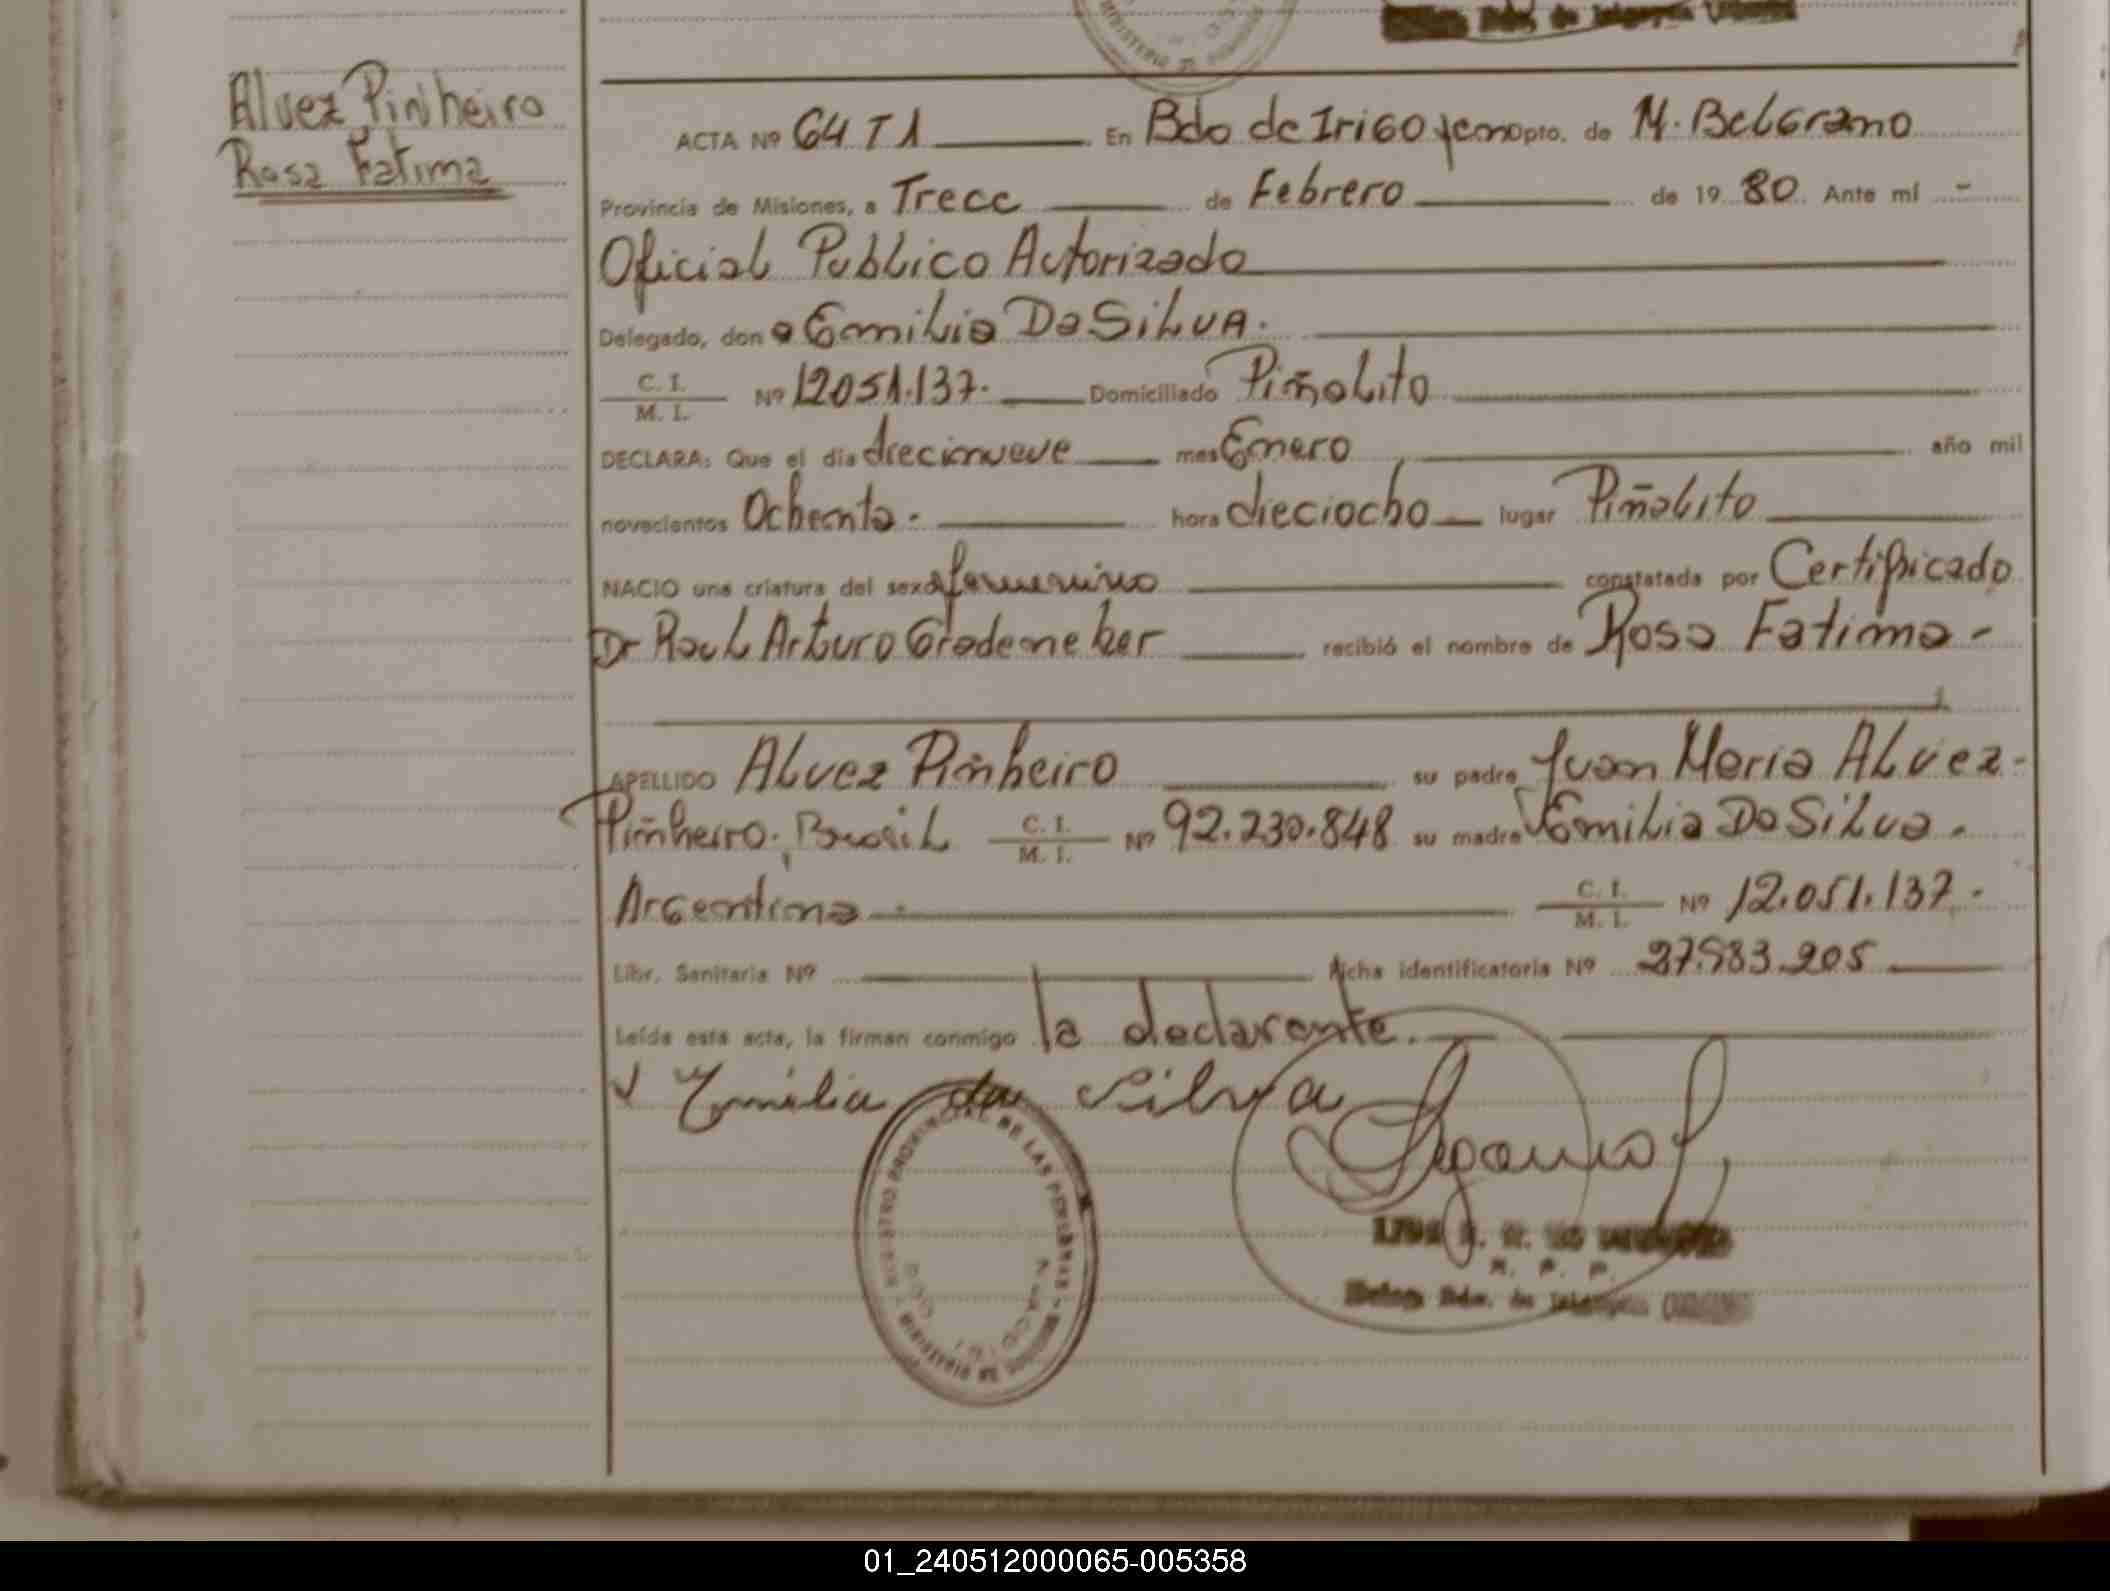 Alvez Pinheiro
Rosa Fatima
ACTA Nº 64 T1 En Bdo de Irigoyen Dpto. de M. Belgrano
Provincia de Misiones, a Trece de Febrero de 1980. Ante mí -
Oficial Publico Autorizado
Delegado, don a Emilia Da SiLvA.
C. I. / M. I. Nº 12051.137. Domiciliado Piñalito
DECLARA: Que el día diecinueve mes Enero año mil
novecientos Ochenta. hora dieciocho lugar Piñalito
NACIO una criatura del sexo femenino constatada por Certificado
Dr Raul Arturo Grademeker recibió el nombre de Rosa Fatima -
APELLIDO Alvez Piñheiro su padre Juan Maria Alvez -
Piñheiro. Brasil C. I. / M. I. Nº 92.230.848 su madre Emilia Da Silva.
Argentina. C. I. / M. I. Nº 12.051.137.
Libr. Sanitaria Nº Ficha identificatoria Nº 27.583.205
Leída esta acta, la firman conmigo la declarante.
Emilia da Silva
REGISTRO PROVINCIAL DE LAS PERSONAS
01_240512000065-005358